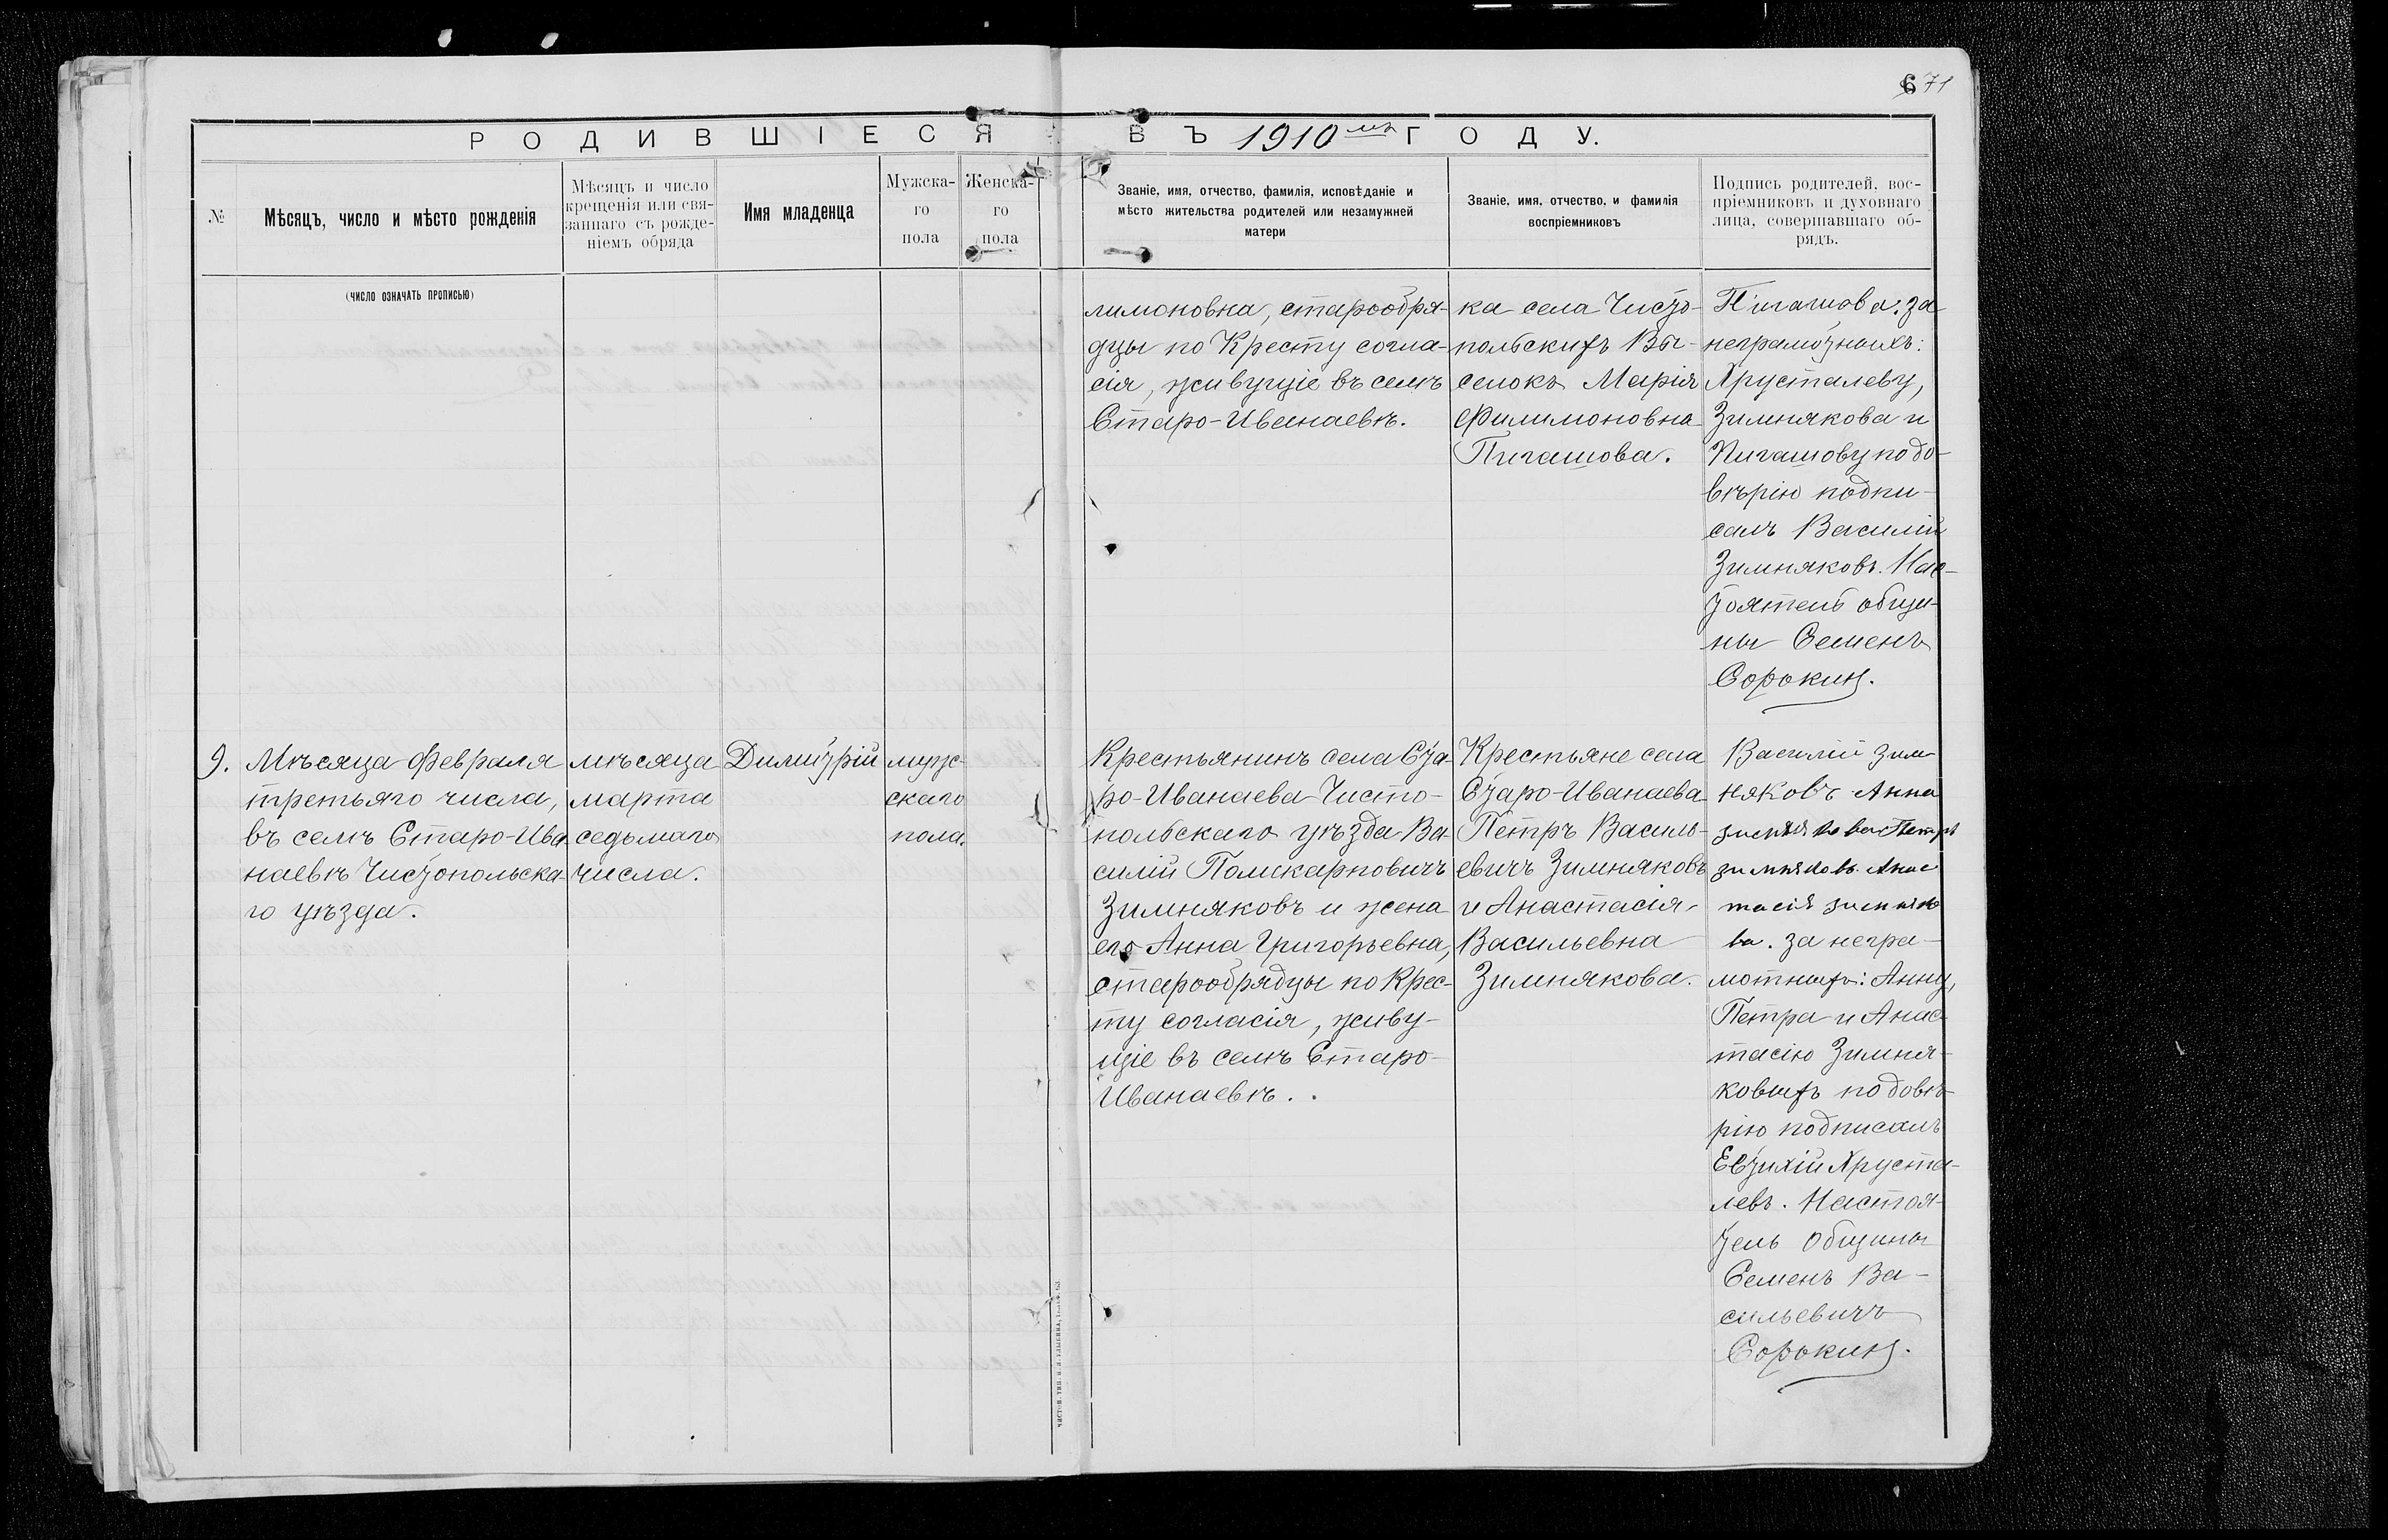 6 71
РОДИВШІЕСЯ ВЪ 1910 мъ ГОДУ.
№
Мѣсяцъ, число и мѣсто рожденія
Мѣсяцъ и число
крещенія или свя-
заннаго съ рожде-
ніемъ обряда
Имя младенца
Мужска-
го
пола
Женска-
го
пола
Званіе, имя, отчество, фамилія, исповѣданіе и
мѣсто жительства родителей или незамужней
матери
Званіе, имя, отчество, и фамилія
воспріемниковъ
Подпись родителей, вос-
пріемниковъ и духовнаго
лица, совершавшаго об-
рядъ.
(число означать прописью)
лимоновна, старообря-
дцы по Кресту согла-
сія, живущіе въ селѣ
Старо-Иванаевѣ.
ка села Чисто-
польскихъ Вы-
селокъ Марія
Филимоновна
Пигашова.
Пигашова: за
неграмотныхъ:
Хрусталеву,
Зимнякова и
Пигашову по до-
вѣрію подпи-
салъ Василій
Зимняковъ. Нас-
тоятель общи-
ны Семенъ
Сорокинъ.
9.
Мѣсяца Февраля
третьяго числа,
въ селѣ Старо-Ива
наевѣ Чистопольска-
го уѣзда.
мѣсяца
марта
седьмаго
числа.
Димитрій
мужс-
скаго
пола.
Крестьянинъ села Ста-
ро-Иванаева Чисто-
польскаго уѣзда Ва-
силій Поликарповичъ
Зимняковъ и жена
его Анна Григорьевна,
старообрядцы по Крес-
ту согласія, живу-
щіе въ селѣ Старо-
Иванаевѣ.
Крестьяне села
Старо-Иванаева
Петръ Василь-
евичъ Зимняковъ
и Анастасія
Васильевна
Зимнякова.
Василій Зим
няковъ Анна
зимнякова Петръ
зимняковъ. Анас
тасія зимняко
ва. За негра-
мотныхъ: Анну,
Петра и Анас-
тасію Зимня-
ковыхъ по довѣ-
рію подписалъ
Евтихій Хруста-
левъ. Настоя-
тель общины
Семенъ Ва-
сильевичъ
Сорокинъ.